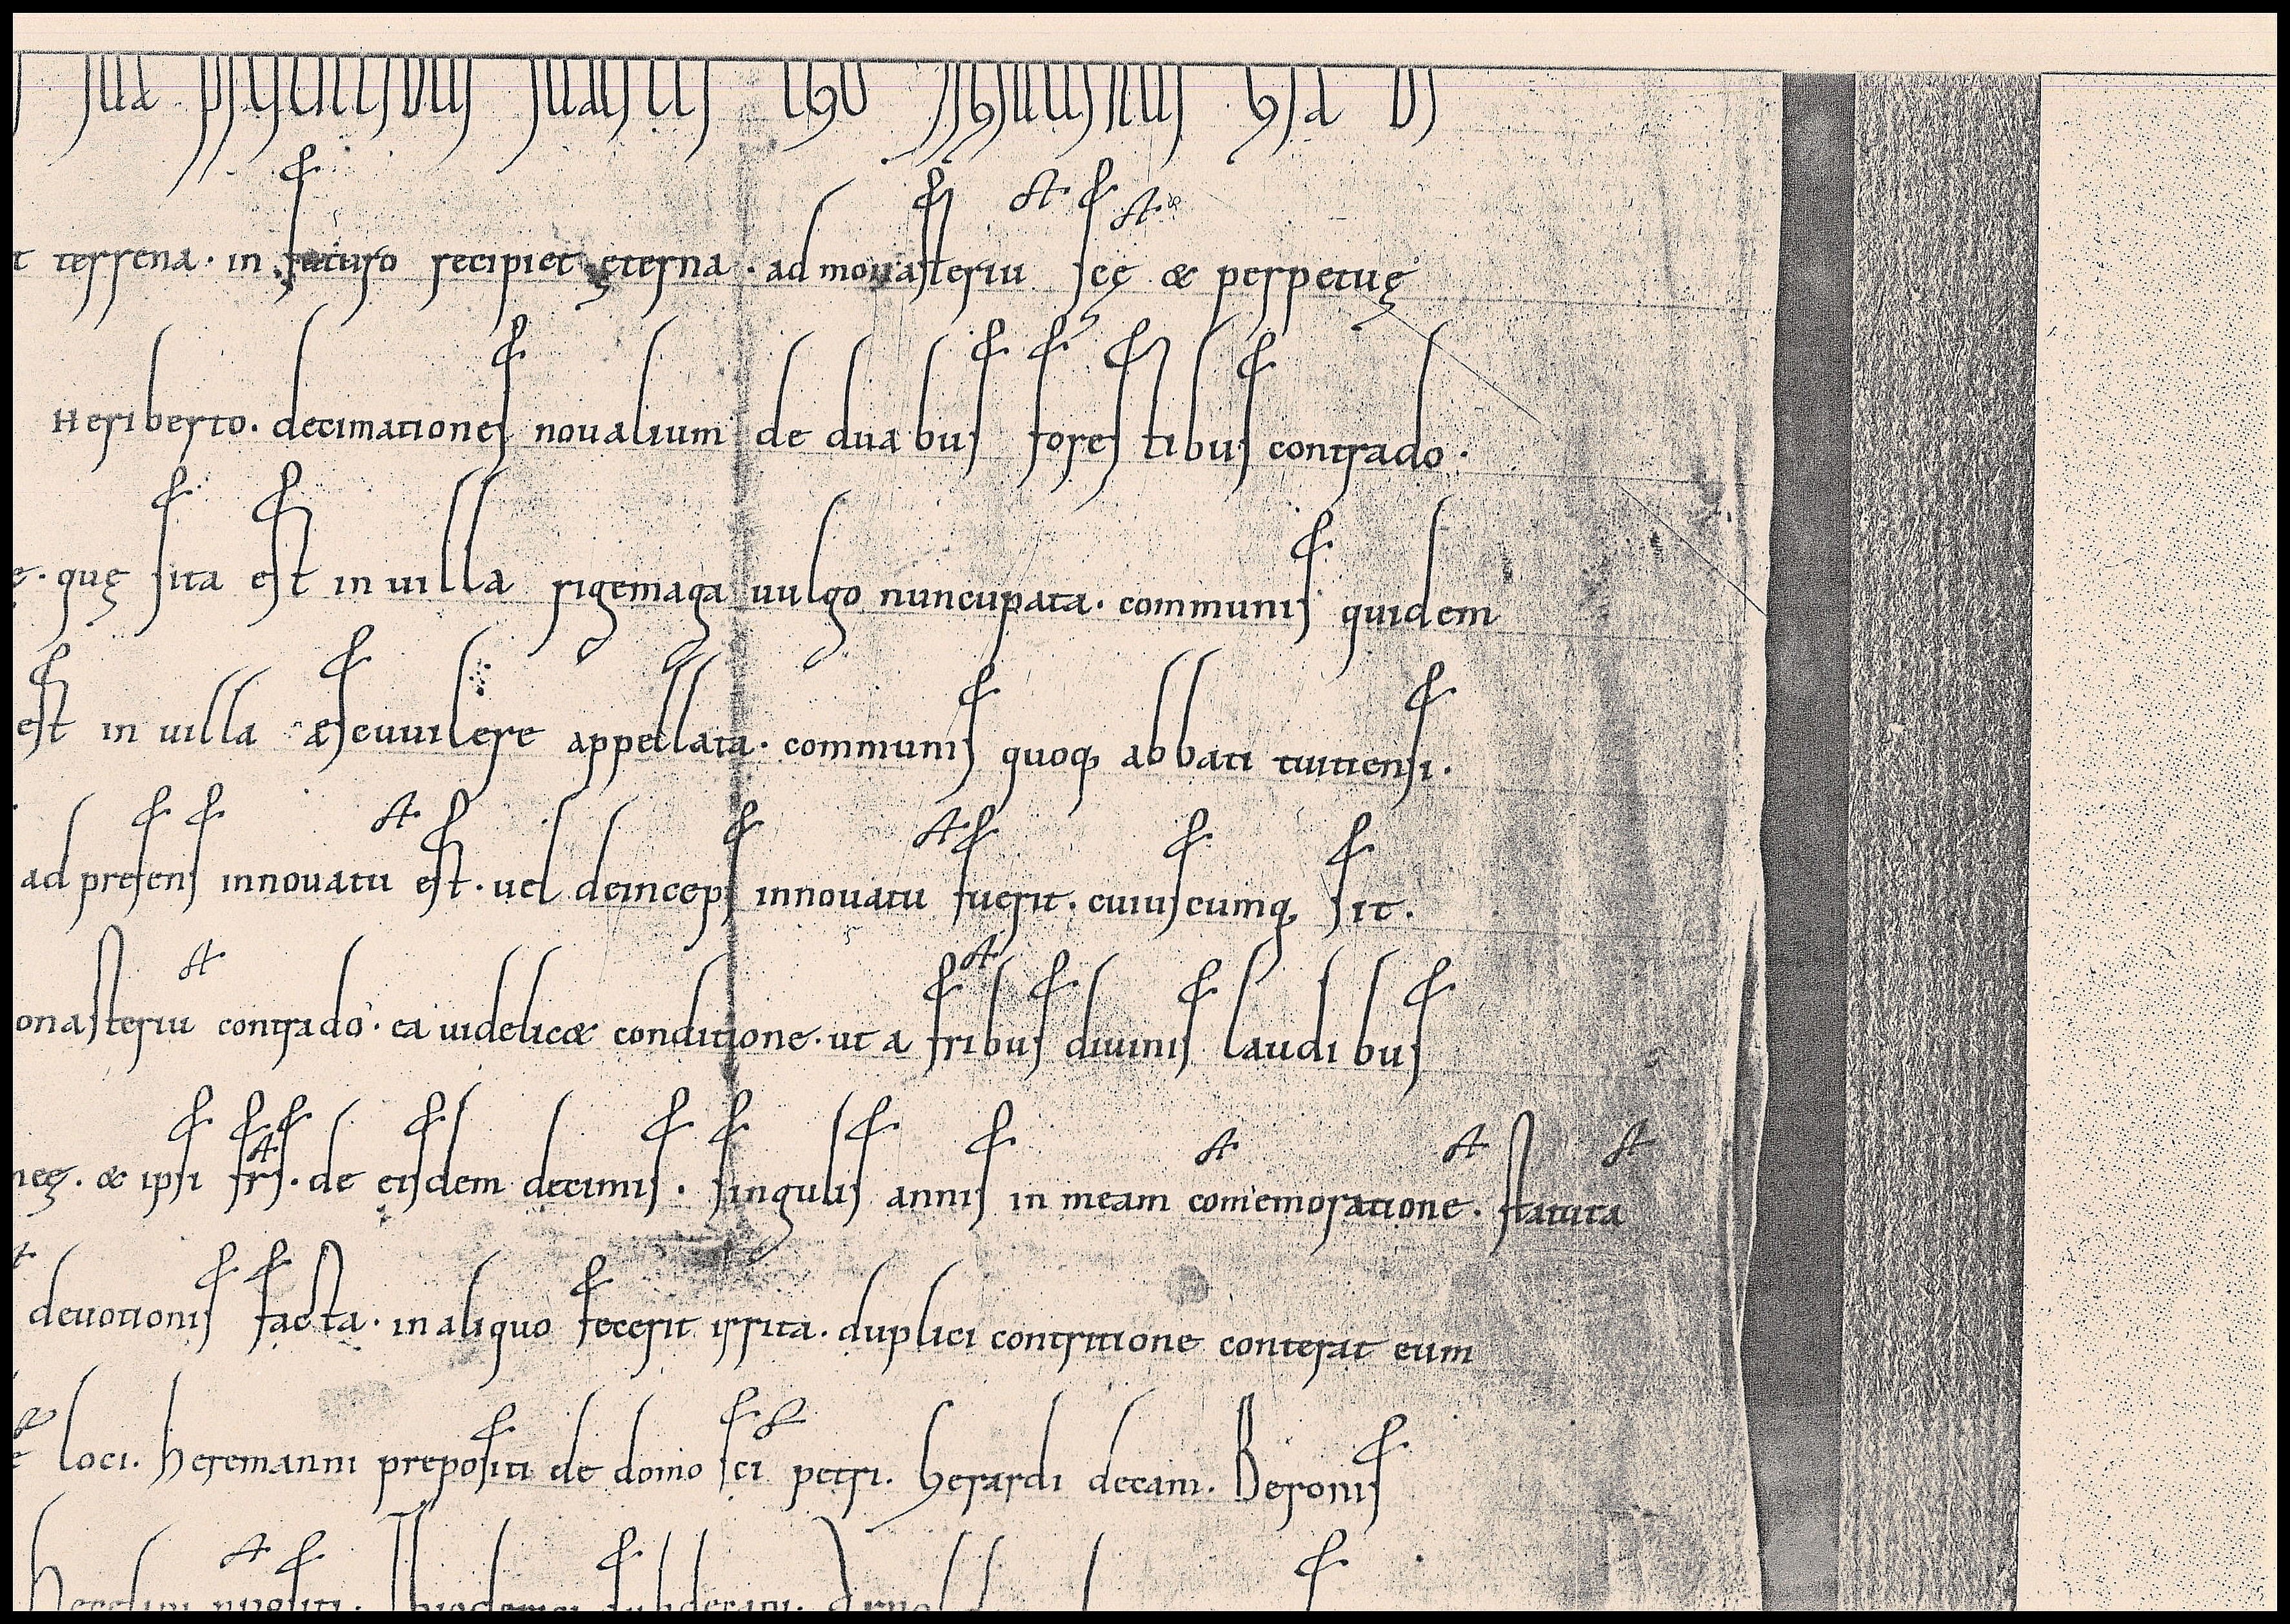 t terrena · in futuro recipiet ęterna · ad monasteriu scę & perpetuę
Heriberto · decimationes noualium de duabus forestibus contrado ·
e · quę sita est in uilla rigemaga uulgo nuncupata · communis quidem
est in uilla æscuuilere appellata · communis quoq; abbati tuitiensi ·
ad presens innouatu est · uel deinceps innouatu fuerit · cuiuscumq; sit ·
onasteriu contrado · ea uidelicæ conditione · ut a fribus diuinis laudibus
neę · & ipsi frs · de eisdem decimis · singulis annis in meam comemoratione · statuta
deuotionis facta · in aliquo fecerit irrita · duplici contritione conterat eum
e loci · heremanni prepositi de domo sci petri · herardi decani · Beronis